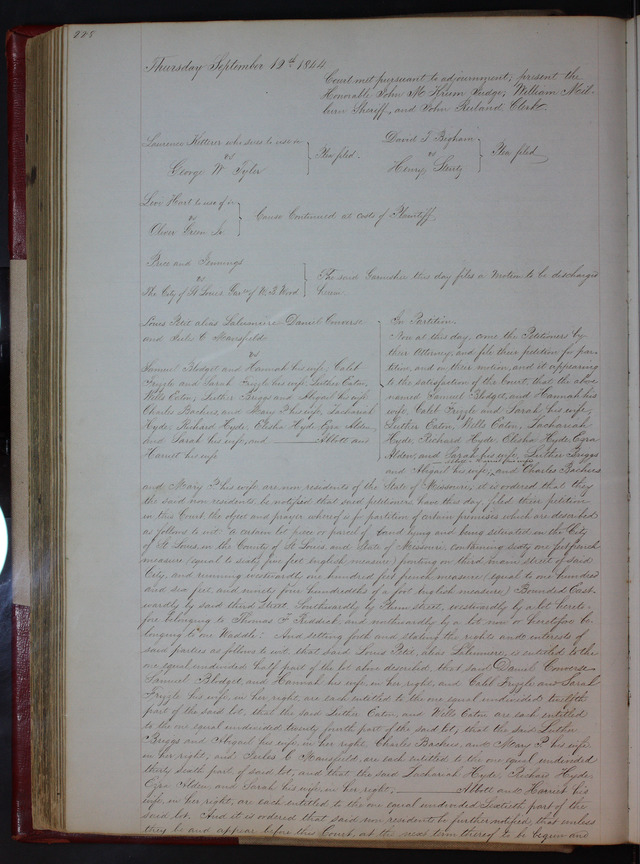 228
Thursday September 19th 1844
Court met pursuant to adjournment, present the
Honorable John M Krum Judge, William Mil-
burn Sheriff, and John Ruland Clerk.
Laurence who sues to use
vs
George W Tyler
Plea filed.
David T Bigham
vs
Henry
Plea filed
Levi Hart to use of
vs
Oliver Green Jr
Cause Continued at costs of Plaintiff.
Price and Jennings
vs
The City of St Louis Gar. of W. B. Wood
The said Garnishee this day files a Motion to be discharged
herein
Louis Petit alias Labusmiere Daniel Converse
and Jules C Mansfield
vs
Samuel Blodget and Hannah his wife; Caleb
Fryzle and Sarah Fryzle his wife Luther Eaton,
Wells Eaton, Luther Briggs and Abigail his wife
Charles Backus, and Mary P his wife, Zachariah
Hyde, Richard Hyde, Elisha Hyde, Ezra Alden,
and Sarah his wife, and Abbott and
Harriet his wife
In Partition.
Now at this day, come the Petitioners by
their Attorney and file their petition for par-
tition, and on their motion, and it appearing
to the satisfaction of the Court, that the above
named Samuel Blodget, and Hannah his
wife, Caleb Fryzle and Sarah his wife,
Luther Eaton, Wells Eaton, Zachariah
Hyde, Richard Hyde, Elisha Hyde, Ezra
Alden, and Sarah his wife, Luther Briggs
and Abigail his wife, and Charles Backus
and Mary P his wife are non residents of the State of Missouri, it is ordered that they
the said non residents be notified that said petitioners have this day filed their petition
in this Court the object and prayer whereof is for partition of certain premises which are described
as follows to wit: A certain lot piece or parcel of Land lying and being situated in the City
of St Louis in the County of St Louis and State of Missouri, containing sixty one feet french
measure (equal to sixty five feet english measure) fronting on third main street of said
City, and running westwardly one hundred feet french measure (equal to one hundred
and six feet, and ninety five hundredths of a foot english measure) Bounded East-
wardly by said third Street Southwardly by Plum street, westwardly by a lot hereto-
fore belonging to Thomas F Riddick, and northwardly by a lot now or heretofore be-
longing to one Waddle: And setting forth and stating the rights and interests of
said parties as follows to wit: that said Louis Petit, alias Labusmiere, is entitled to the
one equal undivided half part of the lot above described, that said Daniel Converse
Samuel Blodget and Hannah his wife, in her right, and Caleb Fryzle and Sarah
Fryzle his wife, in her right, are each entitled to the one equal undivided twelfth
part of the said lot, that the said Luther Eaton, and Wells Eaton are each entitled
to the one equal undivided twenty fourth part of the said lot, that the said Luther
Briggs and Abigail his wife in her right, Charles Backus, and Mary P. his wife
in her right, and Jules C Mansfield, are each entitled to the one equal undivided
thirty sixth part of said lot, and that the said Zachariah Hyde, Richard Hyde,
Ezra Alden and Sarah his wife, in her right, Abbott and Harriet his
wife, in her right, are each entitled to the one equal undivided sixtieth part of the
said lot. And it is ordered that said non residents be further notified, that unless
they be and appear before this Court, at the next term thereof to be begun and